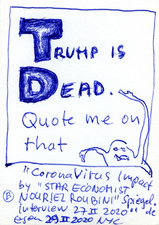 TRUMP IS
DEAD.
Quote me on
that
"CoronaVirus Impact
by "STAR ECONOMIST
NOURIEL ROUBINI" Spiegel
Interview 27 II 2020"" de
29 II 2020 NYC